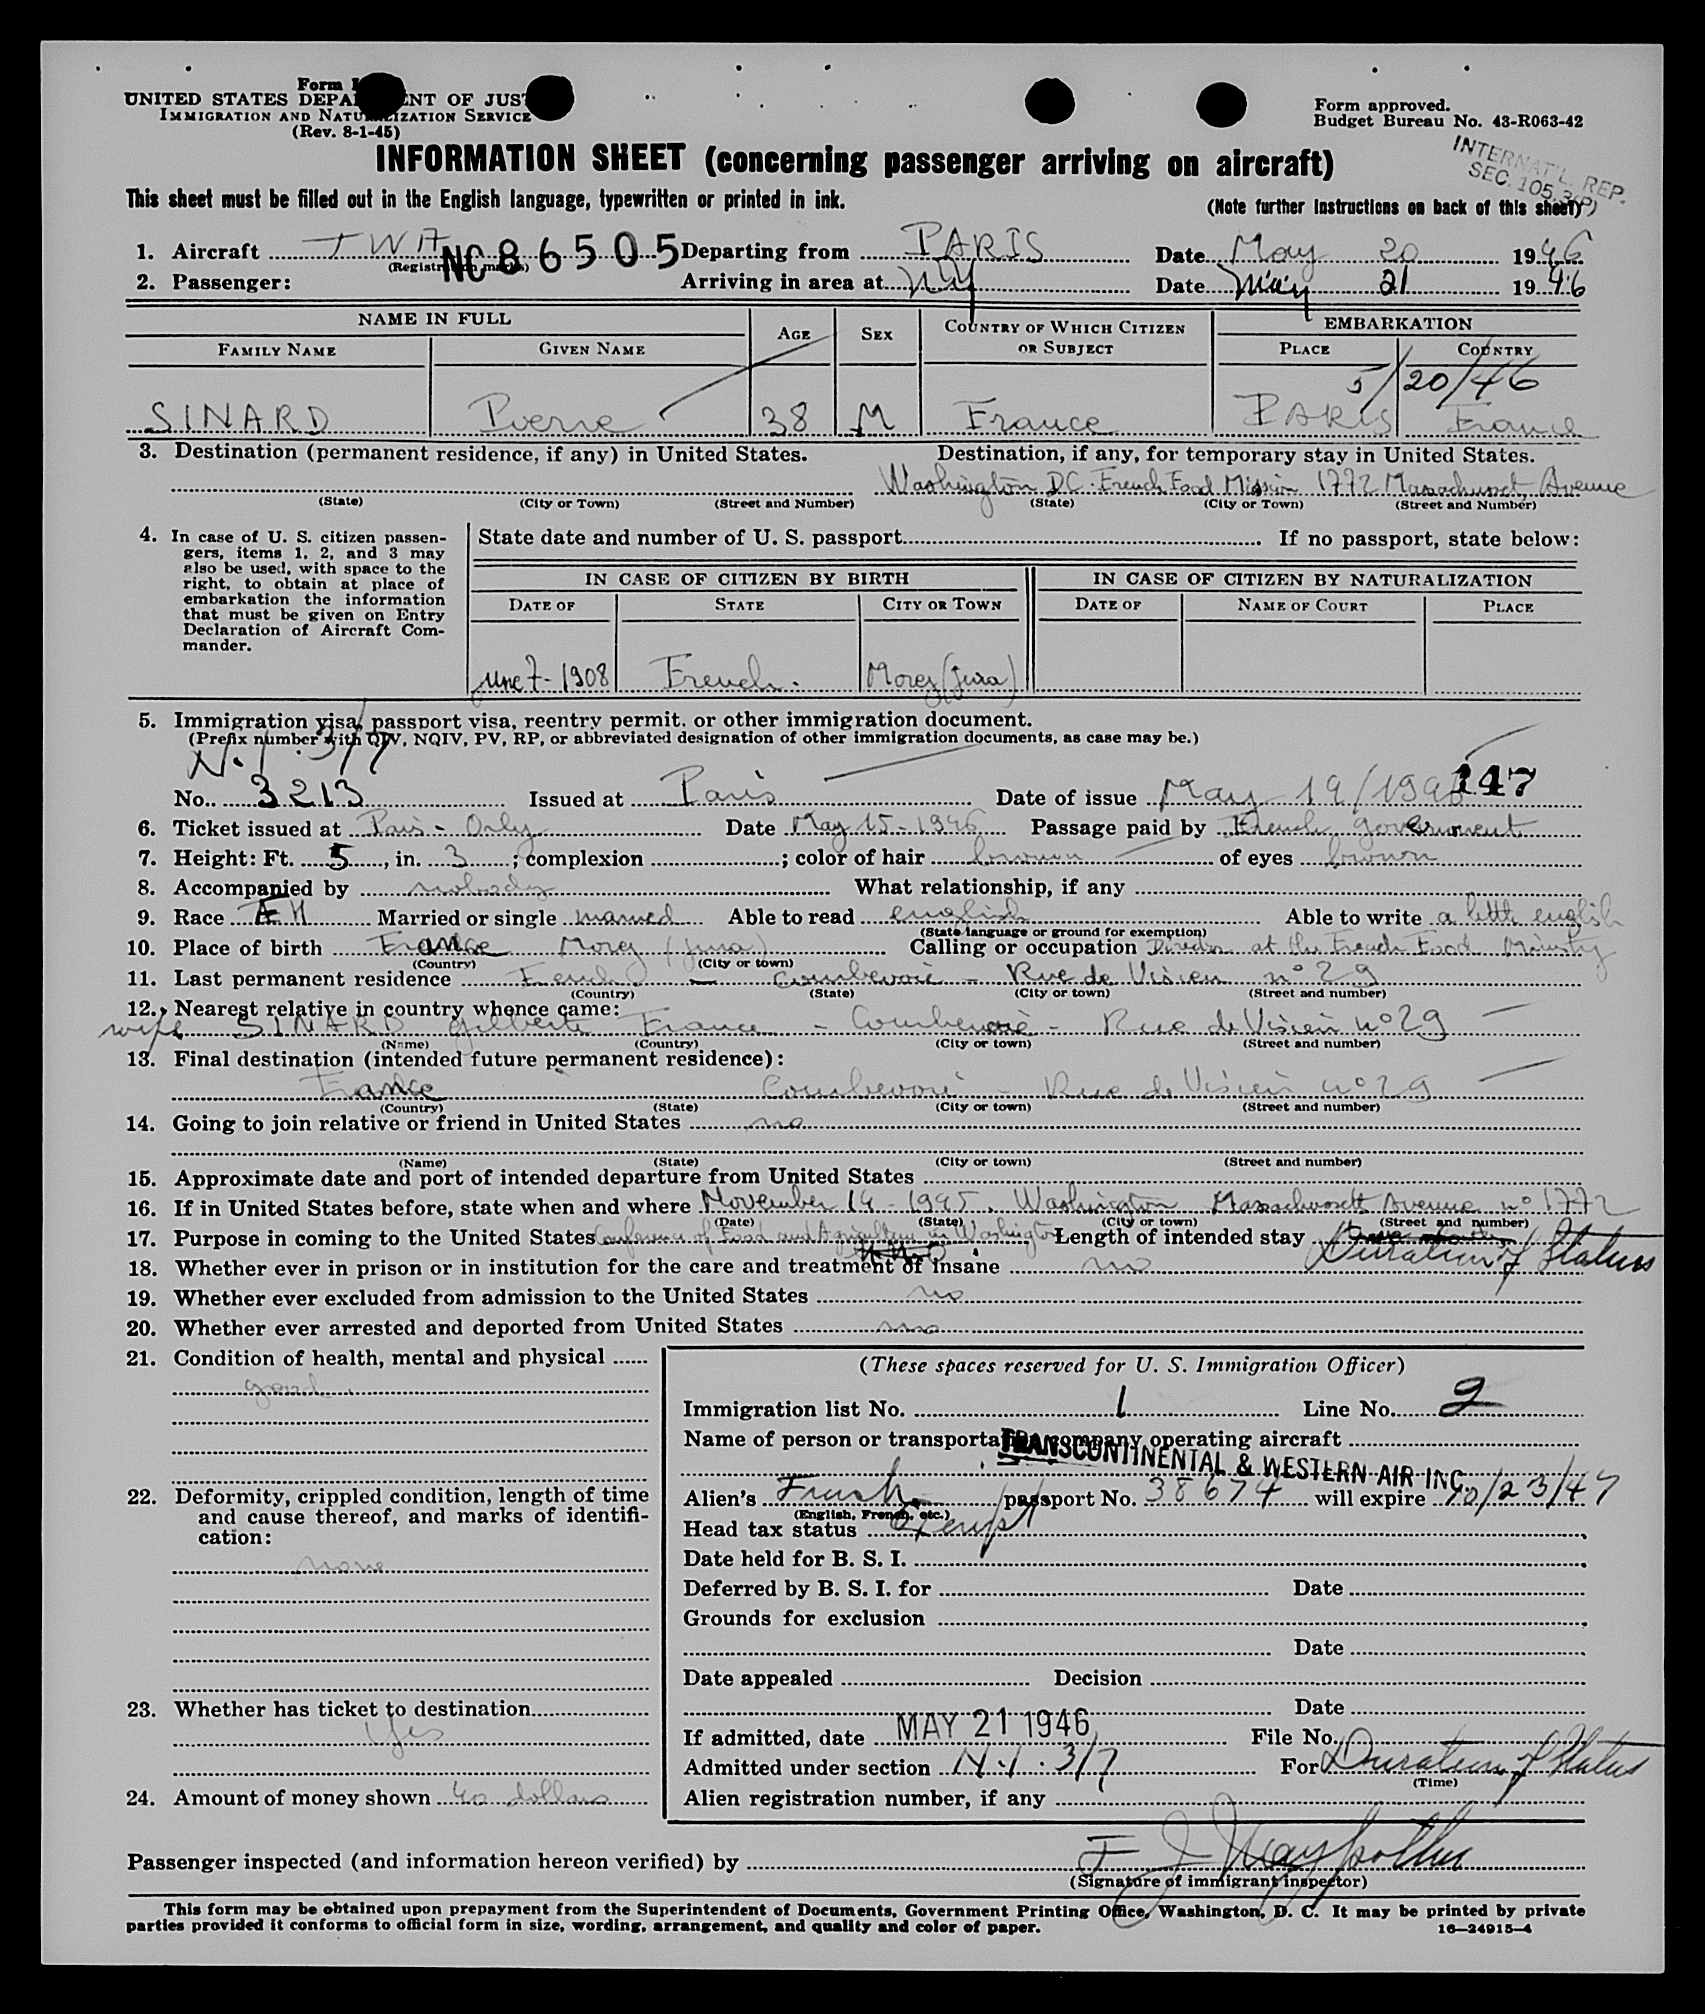 Form I
UNITED STATES DEPA ENT OF JUS
IMMIGRATION AND NATURALIZATION SERVICE
(Rev. 8-1-45)
Form approved.
Budget Bureau No. 43-R063-42
INTERNAT'L. REP.
SEC. 105.3(P)
INFORMATION SHEET (concerning passenger arriving on aircraft)
This sheet must be filled out in the English language, typewritten or printed in ink.
(Note further instructions on back of this sheet)
1. Aircraft TWA NC86505 Departing from PARIS Date May 20 1946
(Registration marks)
2. Passenger: Arriving in area at NY Date May 21 1946
NAME IN FULL AGE SEX COUNTRY OF WHICH CITIZEN OR SUBJECT EMBARKATION
FAMILY NAME GIVEN NAME PLACE COUNTRY
5/20/46
SINARD Pierre 38 M France PARIS France
3. Destination (permanent residence, if any) in United States. Destination, if any, for temporary stay in United States.
Washington DC. French Food Mission 1772 Massachusset, Avenue
(State) (City or Town) (Street and Number) (State) (City or Town) (Street and Number)
4. In case of U. S. citizen passengers, items 1, 2, and 3 may also be used, with space to the right, to obtain at place of embarkation the information that must be given on Entry Declaration of Aircraft Commander.
State date and number of U. S. passport If no passport, state below:
IN CASE OF CITIZEN BY BIRTH IN CASE OF CITIZEN BY NATURALIZATION
DATE OF STATE CITY OR TOWN DATE OF NAME OF COURT PLACE
June 7-1908 French. Morez (Jura)
5. Immigration visa, passport visa, reentry permit, or other immigration document.
(Prefix number with QIV, NQIV, PV, RP, or abbreviated designation of other immigration documents, as case may be.)
N.I. 3/7
147
No. 3213 Issued at Paris Date of issue May 19/1946
6. Ticket issued at Paris - Orly Date May 15-1946 Passage paid by French government
7. Height: Ft. 5, in. 3; complexion ; color of hair brown of eyes brown
8. Accompanied by nobody What relationship, if any
9. Race Married or single married Able to read english Able to write a little english
(State language or ground for exemption)
10. Place of birth France Morez (Jura) Calling or occupation Director at the French Food Ministry
(Country) (City or town)
11. Last permanent residence French Courbevoie - Rue de Visien n° 29
(Country) (State) (City or town) (Street and number)
12. Nearest relative in country whence came:
wife SINARD Gilberte France - Courbevoie - Rue de Visien n° 29
(Name) (Country) (City or town) (Street and number)
13. Final destination (intended future permanent residence):
France Courbevoie - Rue de Visien n° 29
(Country) (State) (City or town) (Street and number)
14. Going to join relative or friend in United States no
(Name) (State) (City or town) (Street and number)
15. Approximate date and port of intended departure from United States
16. If in United States before, state when and where November 14 - 1945. Washington Massachusett Avenue n° 1772
(Date) (State) (City or town) (Street and number)
17. Purpose in coming to the United States Conference of Food and Agriculture in Washington Length of intended stay Duration of Status
18. Whether ever in prison or in institution for the care and treatment of insane no
19. Whether ever excluded from admission to the United States no
20. Whether ever arrested and deported from United States no
21. Condition of health, mental and physical
good
22. Deformity, crippled condition, length of time and cause thereof, and marks of identification:
none
23. Whether has ticket to destination
Yes
24. Amount of money shown 40 dollars
(These spaces reserved for U. S. Immigration Officer)
Immigration list No. 1 Line No. 2
Name of person or transportation company operating aircraft
TRANSCONTINENTAL & WESTERN AIR INC.
Alien's French passport No. 38674 will expire 10/23/47
(English, French, etc.)
Head tax status Exempt
Date held for B. S. I.
Deferred by B. S. I. for Date
Grounds for exclusion
Date
Date appealed Decision
Date
If admitted, date MAY 21 1946 File No.
Admitted under section N.I. 3/7 For Duration of Status
(Time)
Alien registration number, if any
Passenger inspected (and information hereon verified) by
(Signature of immigrant inspector)
This form may be obtained upon prepayment from the Superintendent of Documents, Government Printing Office, Washington, D. C. It may be printed by private
parties provided it conforms to official form in size, wording, arrangement, and quality and color of paper. 16—24915-4